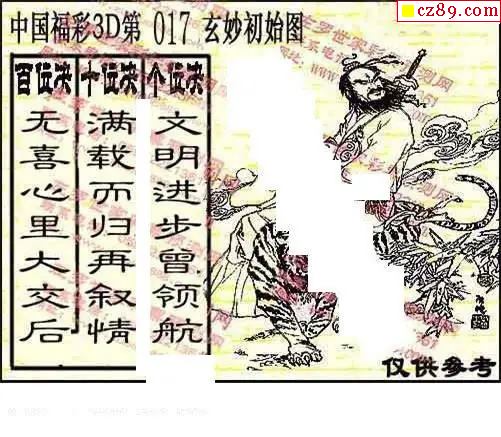 cz89.com
中国福彩3D第 017 玄妙初始图
百位决 十位决 个位决
无喜心里大交后
满载而归再叙情
文明进步曾领航
仅供参考